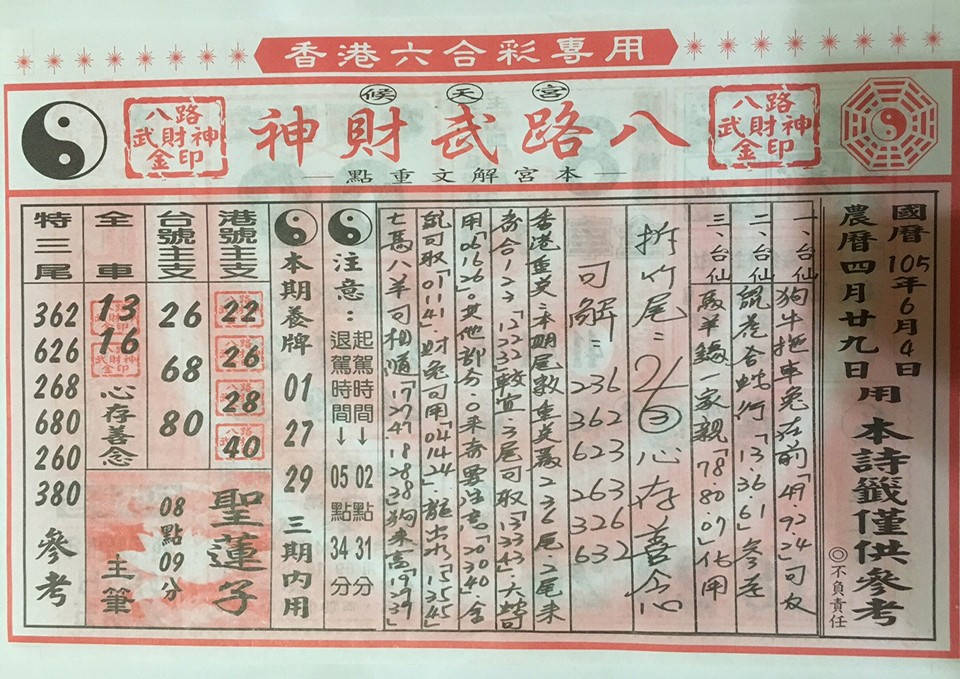 香港六合彩專用
候天宮
八路武財神
八路武財神金印
八路武財神金印
本宮解文重點
國曆105年6月4日
農曆四月廿九日
用
本詩籤僅供參考
◎不負責任
一、台仙狗牛拖車兔在前「49.92.24」可友
二、台仙鼠卷合蛇行「13.36.61」參差
三、台仙馬羊雞一家親「78 80.07」化用
折竹尾=2/6③心存善念
可解=236 362 623 263 326 632
香港重英=本期尾數重英聶236尾2尾來
奇合123「12 22 32」較宜3尾可取「13 33 43」大
用「06 16 26」。其他部分。0來奇要生吉「20 30 40」全
鼠可取「01 11 41」财兔可用「04 14 24」龍出水「15 35 45」
七馬八羊可相順「17 27 47.18 28 38」狗來高「19 29 39」
注意：
起駕時間↓02點31分
退駕時間↓05點34分
本期養牌
01
27
29
三期內用
港號主支
22
26
28
40
台號主支
26
68
80
全車
13
16
心存善念
特三尾
362
626
268
680
260
380
參考
聖蓮子
08點09分
主筆